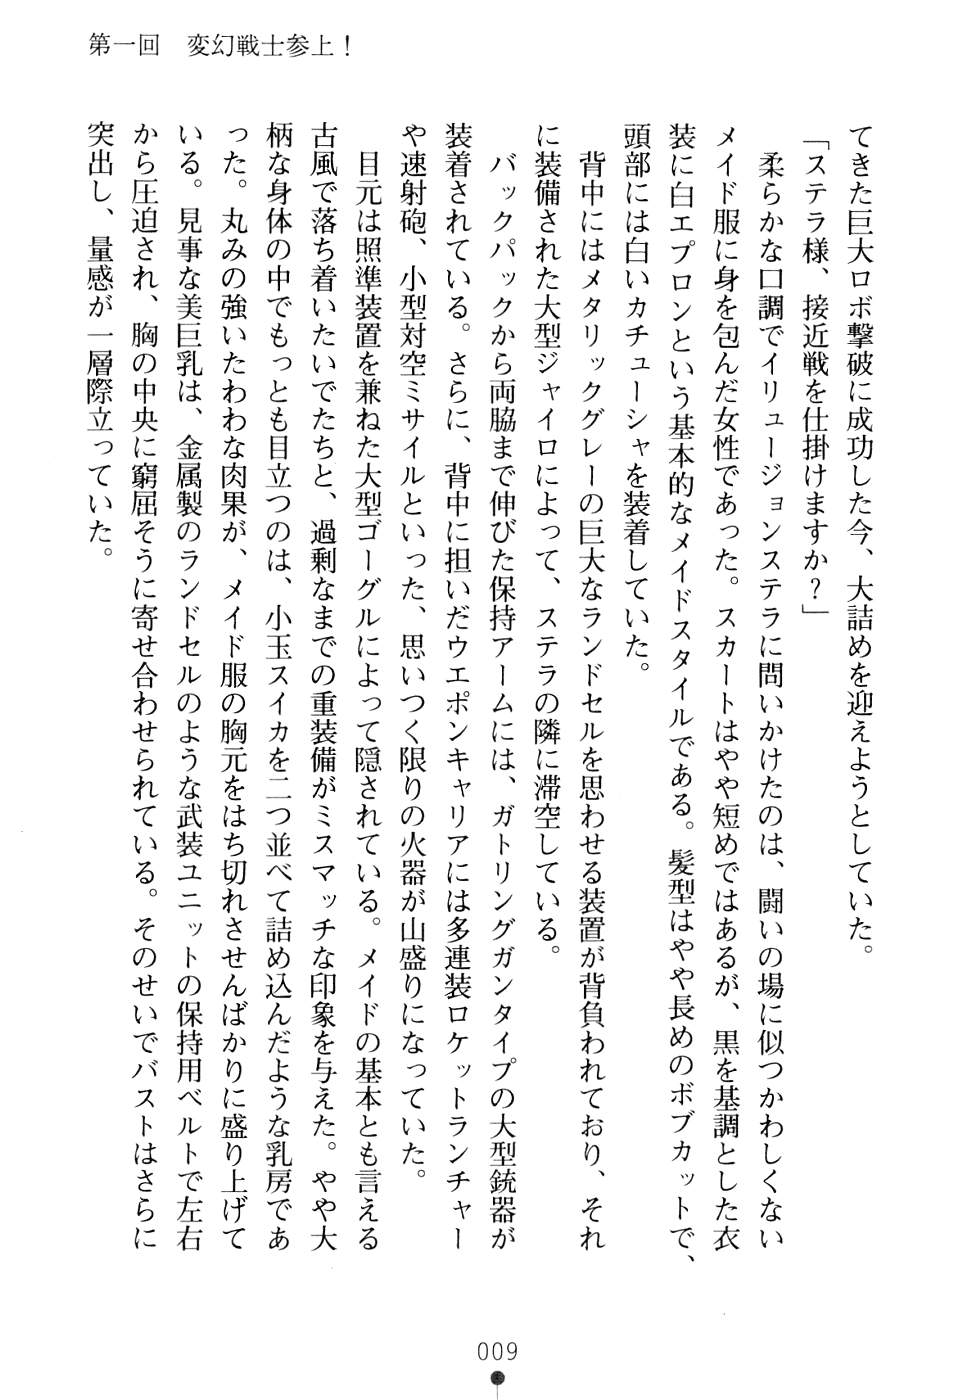 第一回　変幻戦士参上！
てきた巨大ロボ撃破に成功した今、大詰めを迎えようとしていた。
「ステラ様、接近戦を仕掛けますか？」
　柔らかな口調でイリュージョンステラに問いかけたのは、闘いの場に似つかわしくない
メイド服に身を包んだ女性であった。スカートはやや短めではあるが、黒を基調とした衣
装に白エプロンという基本的なメイドスタイルである。髪型はやや長めのボブカットで、
頭部には白いカチューシャを装着していた。
　背中にはメタリックグレーの巨大なランドセルを思わせる装置が背負われており、それ
に装備された大型ジャイロによって、ステラの隣に滞空している。
　バックパックから両脇まで伸びた保持アームには、ガトリングガンタイプの大型銃器が
装着されている。さらに、背中に担いだウエポンキャリアには多連装ロケットランチャー
や速射砲、小型対空ミサイルといった、思いつく限りの火器が山盛りになっていた。
　目元は照準装置を兼ねた大型ゴーグルによって隠されている。メイドの基本とも言える
古風で落ち着いたいでたちと、過剰なまでの重装備がミスマッチな印象を与えた。やや大
柄な身体の中でもっとも目立つのは、小玉スイカを二つ並べて詰め込んだような乳房であ
った。丸みの強いたわわな肉果が、メイド服の胸元をはち切れさせんばかりに盛り上げて
いる。見事な美巨乳は、金属製のランドセルのような武装ユニットの保持用ベルトで左右
から圧迫され、胸の中央に窮屈そうに寄せ合わせられている。そのせいでバストはさらに
突出し、量感が一層際立っていた。
009